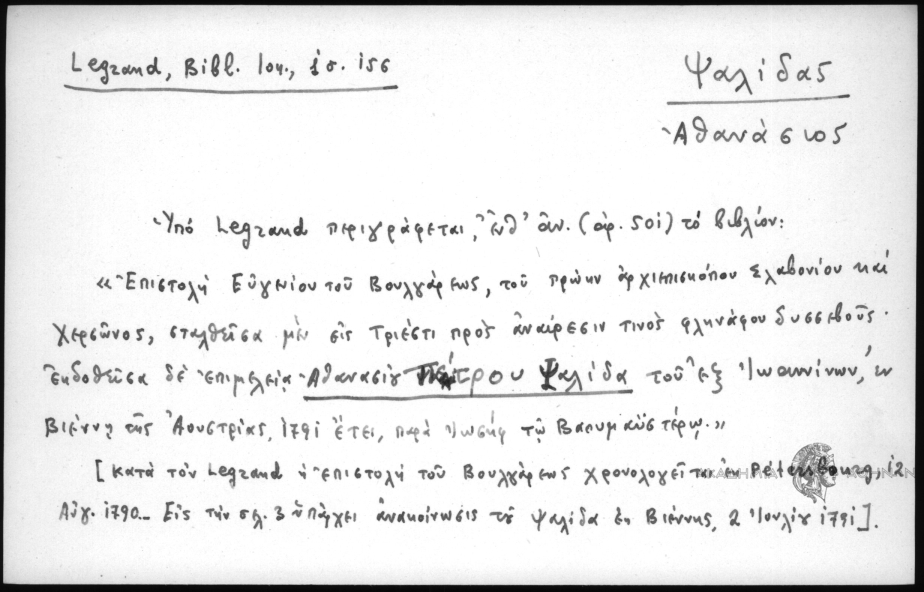 Legrand, Bibl. Ion., 1 σ. 156
Ψαλίδας
Ἀθανάσιος
Ὑπό Legrand περιγράφεται, ἔνθ' ἀν. (ἀρ. 501) τό βιβλίον:
«Ἐπιστολή Εὐγενίου τοῦ Βουλγάρεως, τοῦ πρώην ἀρχιεπισκόπου Σλαβονίου καί
Χερσῶνος, σταλθεῖσα μέν εἰς Τριέστι πρός ἀναίρεσιν τινός φληνάφου δυσσεβοῦς.
Ἐκδοθεῖσα δέ ἐπιμελείᾳ Ἀθανασίου Πέτρου Ψαλίδα τοῦ ἐξ Ἰωαννίνων, ἐν
Βιέννῃ τῆς Ἀουστρίας, 1791 ἔτει, παρά Ἰωσήφ τῷ Βαουμαϋστέρῳ.»
[κατά τόν Legrand ἡ ἐπιστολή τοῦ Βουλγάρεως χρονολογεῖται ἐν Pétersbourg, 12
Αὐγ. 1790_ Εἰς τήν σελ. 3 ὑπάρχει ἀνακοίνωσις τοῦ Ψαλίδα ἐκ Βιέννης, 2 Ἰουλίου 1791].